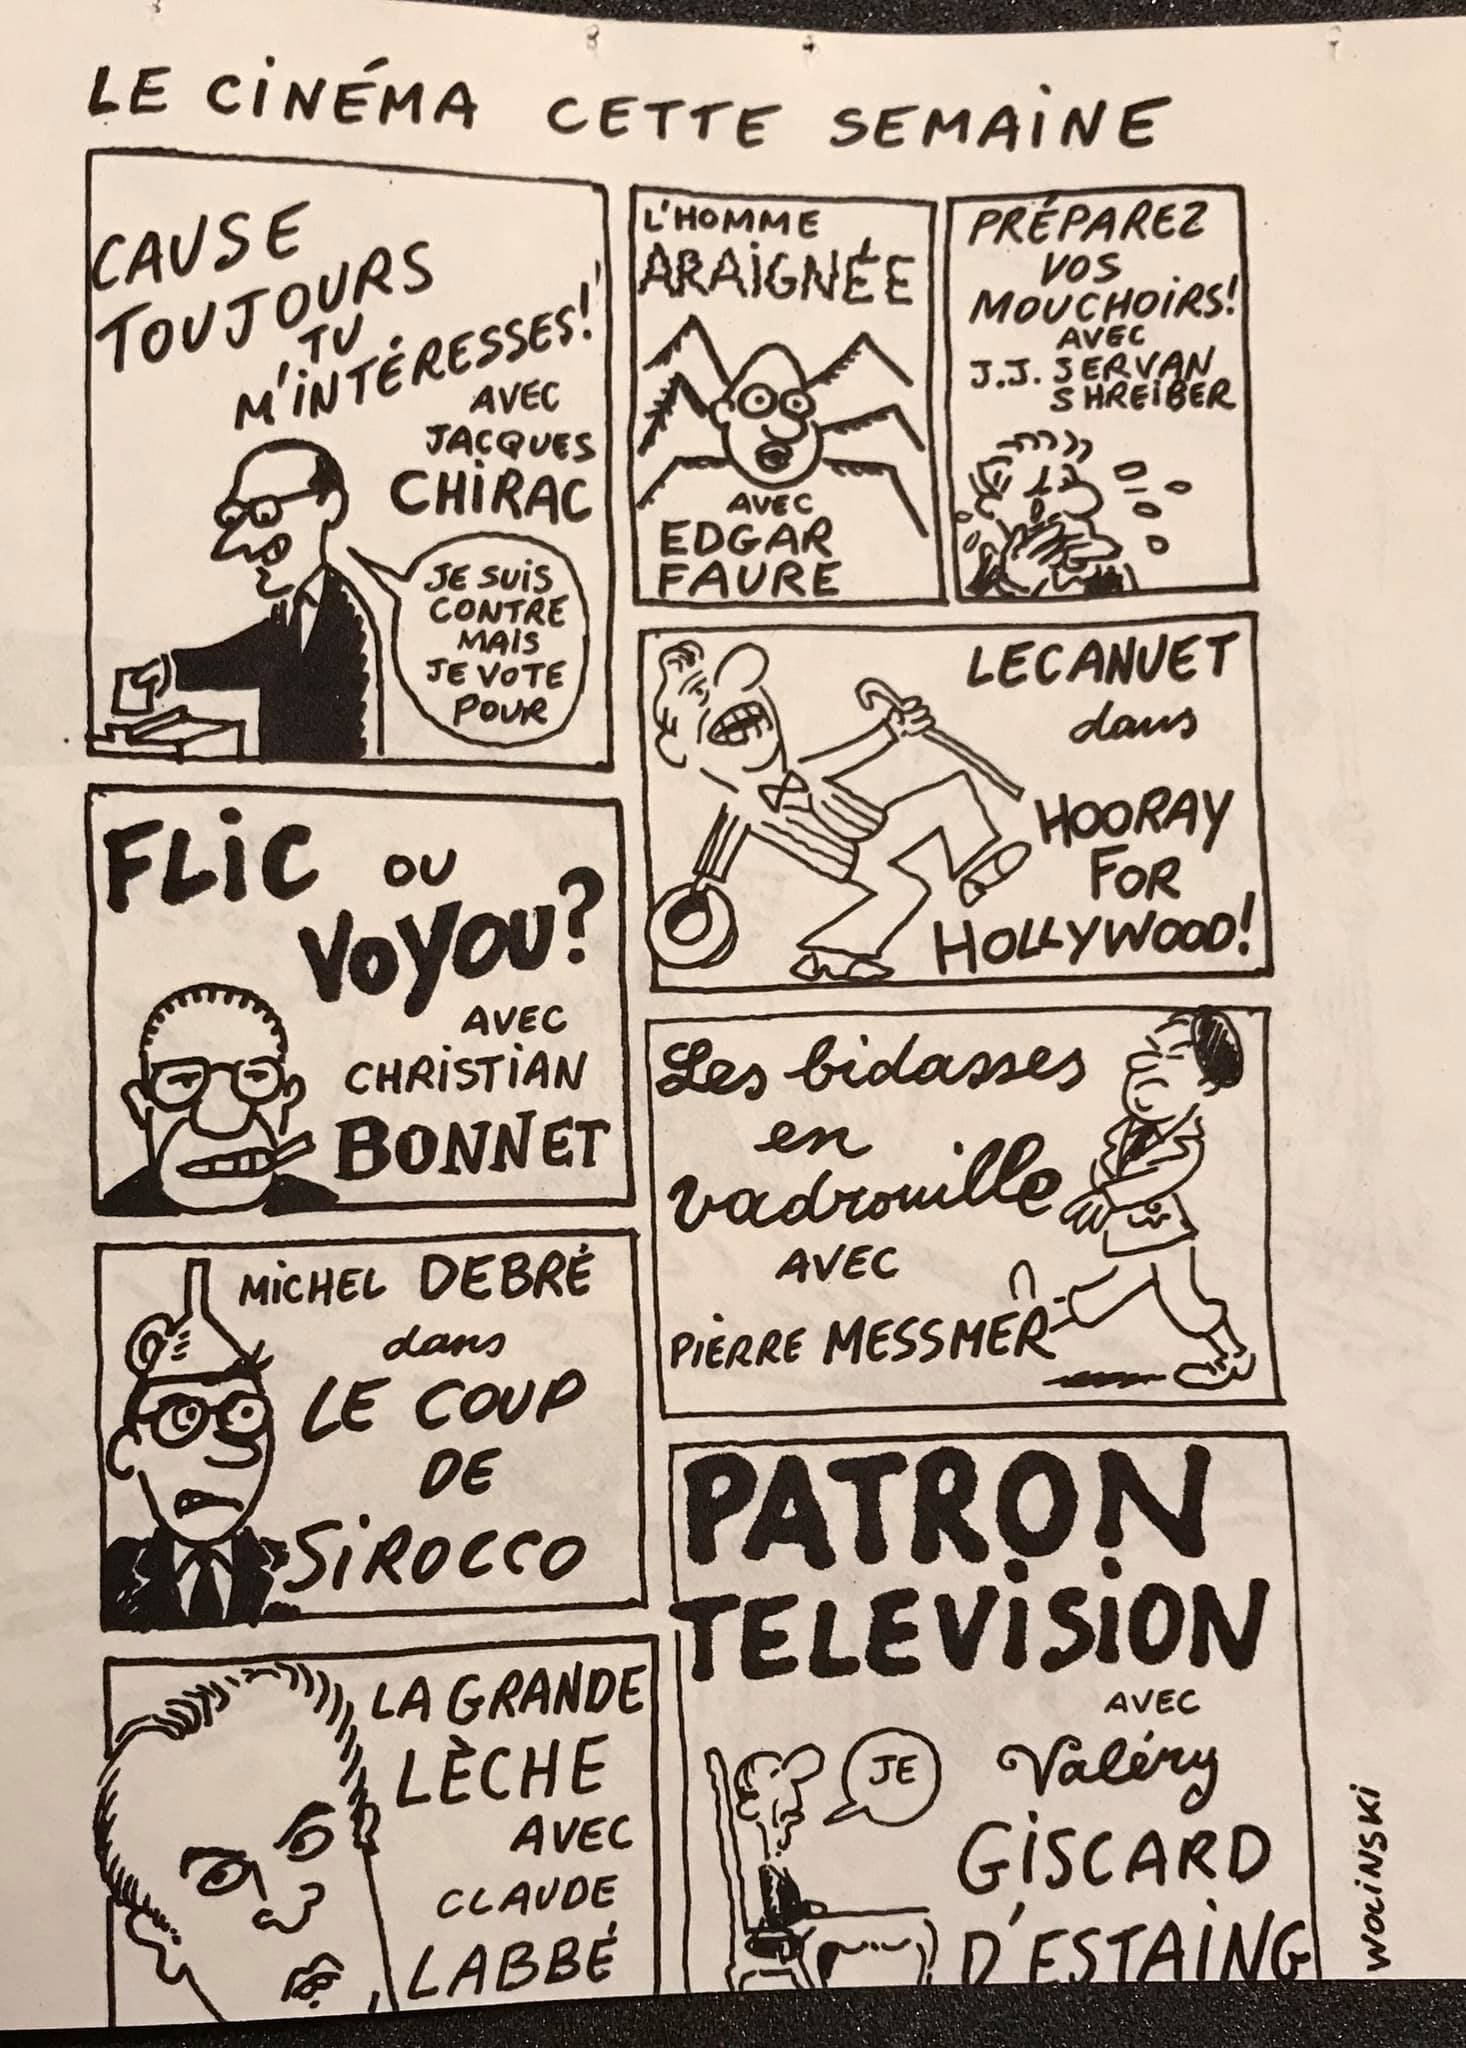 LE CINÉMA CETTE SEMAINE
CAUSE
TOUJOURS
TU
M'INTÉRESSES!
AVEC
JACQUES
CHIRAC
JE SUIS
CONTRE
MAIS
JE VOTE
POUR
L'HOMME
ARAIGNÉE
AVEC
EDGAR
FAURE
PRÉPAREZ
VOS
MOUCHOIRS!
AVEC
J.J. SERVAN
SHREIBER
LECANUET
dans
HOORAY
FOR
HOLLYWOOD!
FLIC OU
VOYOU?
AVEC
CHRISTIAN
BONNET
Les bidasses
en
vadrouille
AVEC
PIERRE MESSMER
MICHEL DEBRÉ
dans
LE COUP
DE
SIROCCO
PATRON
TELEVISION
AVEC
Valéry
GISCARD
D'ESTAING
JE
LA GRANDE
LÈCHE
AVEC
CLAUDE
LABBÉ
WOLINSKI